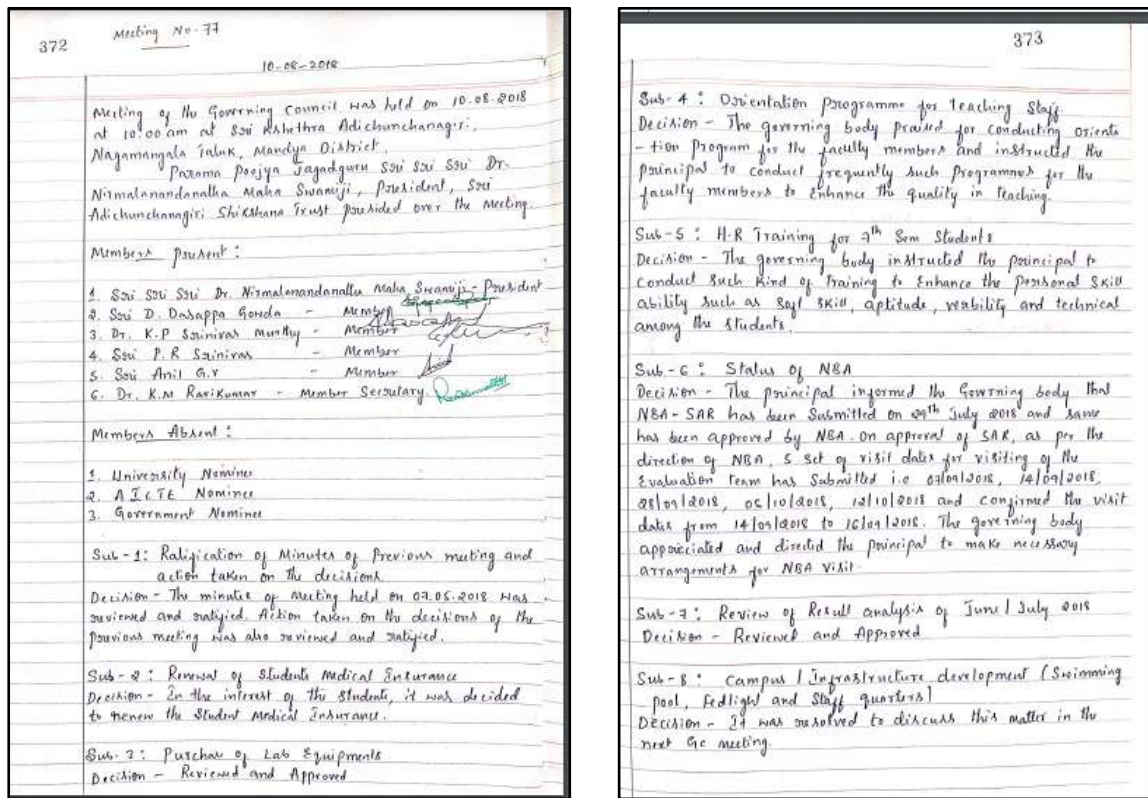 372
Meeting No-77
10-08-2018
Meeting of the Governing Council was held on 10.08.2018
at 10.00am at Sri Kshethra Adichunchanagiri,
Nagamangala Taluk, Mandya District.
Parama Poojya Jagadguru Sri Sri Sri Dr.
Nirmalanandanatha Maha Swamiji, President, Sri
Adichunchanagiri Shikshana Trust presided over the Meeting.
Members Present :
1. Sri Sri Sri Dr. Nirmalanandanatha Maha Swamiji - President
2. Sri D. Dasappa Gowda - Member
3. Dr. K.P Srinivas Murthy - Member
4. Sri P.R Srinivas - Member
5. Sri Anil G.V - Member
6. Dr. K.M Ravikumar - Member Secretary.
Members Absent :
1. University Nominee
2. AICTE Nominee
3. Government Nominee
Sub-1: Ratification of Minutes of Previous meeting and
action taken on the decisions.
Decision - The minutes of Meeting held on 07.05.2018 was
reviewed and ratified. Action taken on the decisions of the
previous meeting was also reviewed and ratified.
Sub-2: Renewal of Students Medical Insurance
Decision - In the interest of the Students, it was decided
to renew the Student Medical Insurance.
Sub-3: Purchase of Lab Equipments
Decision - Reviewed and Approved
373
Sub-4: Orientation Programme for Teaching Staff
Decision - The governing body praised for conducting orienta
-tion Program for the faculty members and instructed the
principal to conduct frequently such Programmes for the
faculty members to Enhance the quality in Teaching.
Sub-5: H.R Training for 7th Sem Students
Decision - The governing body instructed the principal to
conduct such Kind of Training to Enhance the Personal Skill
ability such as Soft Skill, aptitude, verbility and technical
among the students.
Sub-6: Status of NBA
Decision - The principal informed the Governing body that
NBA-SAR has been Submitted on 29th July 2018 and same
has been approved by NBA. On approval of SAR, as per the
direction of NBA, 5 Set of visit dates for visiting of the
Evaluation team has Submitted i.e 07/09/2018, 14/09/2018,
28/09/2018, 05/10/2018, 12/10/2018 and confirmed the visit
dates from 14/09/2018 to 16/09/2018. The governing body
appreciated and directed the principal to make necessary
arrangements for NBA Visit.
Sub-7: Review of Result analysis of June/July 2018
Decision - Reviewed and Approved
Sub-8: Campus/Infrastructure development (Swimming
pool, Fedlight and Staff quarters)
Decision - It was resolved to discuss this matter in the
next GC meeting.